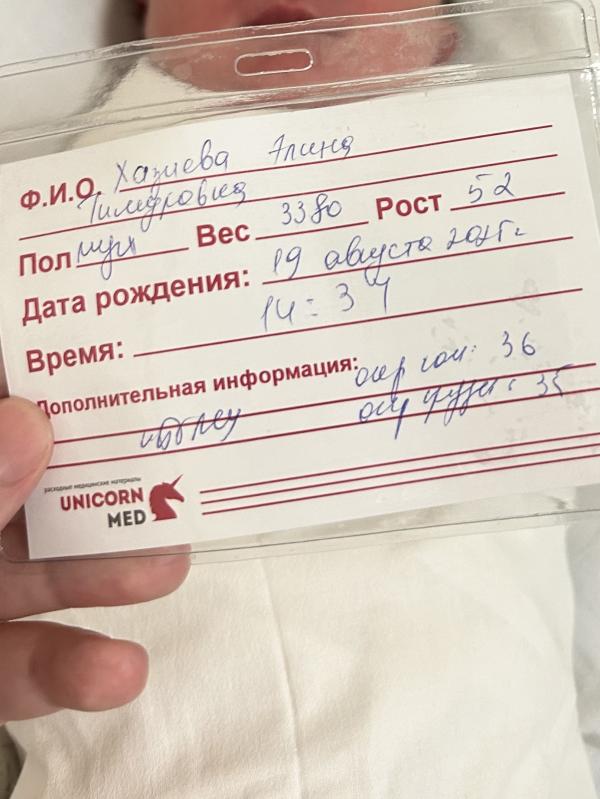 Ф.И.О. Хазиева Элина
Тимуровна
Пол муж Вес 3380 Рост 52
Дата рождения: 19 августа 2025г.
Время: 14:34
Дополнительная информация:
окр гол: 36
окр груди: 35
расходные медицинские материалы
UNICORN
MED